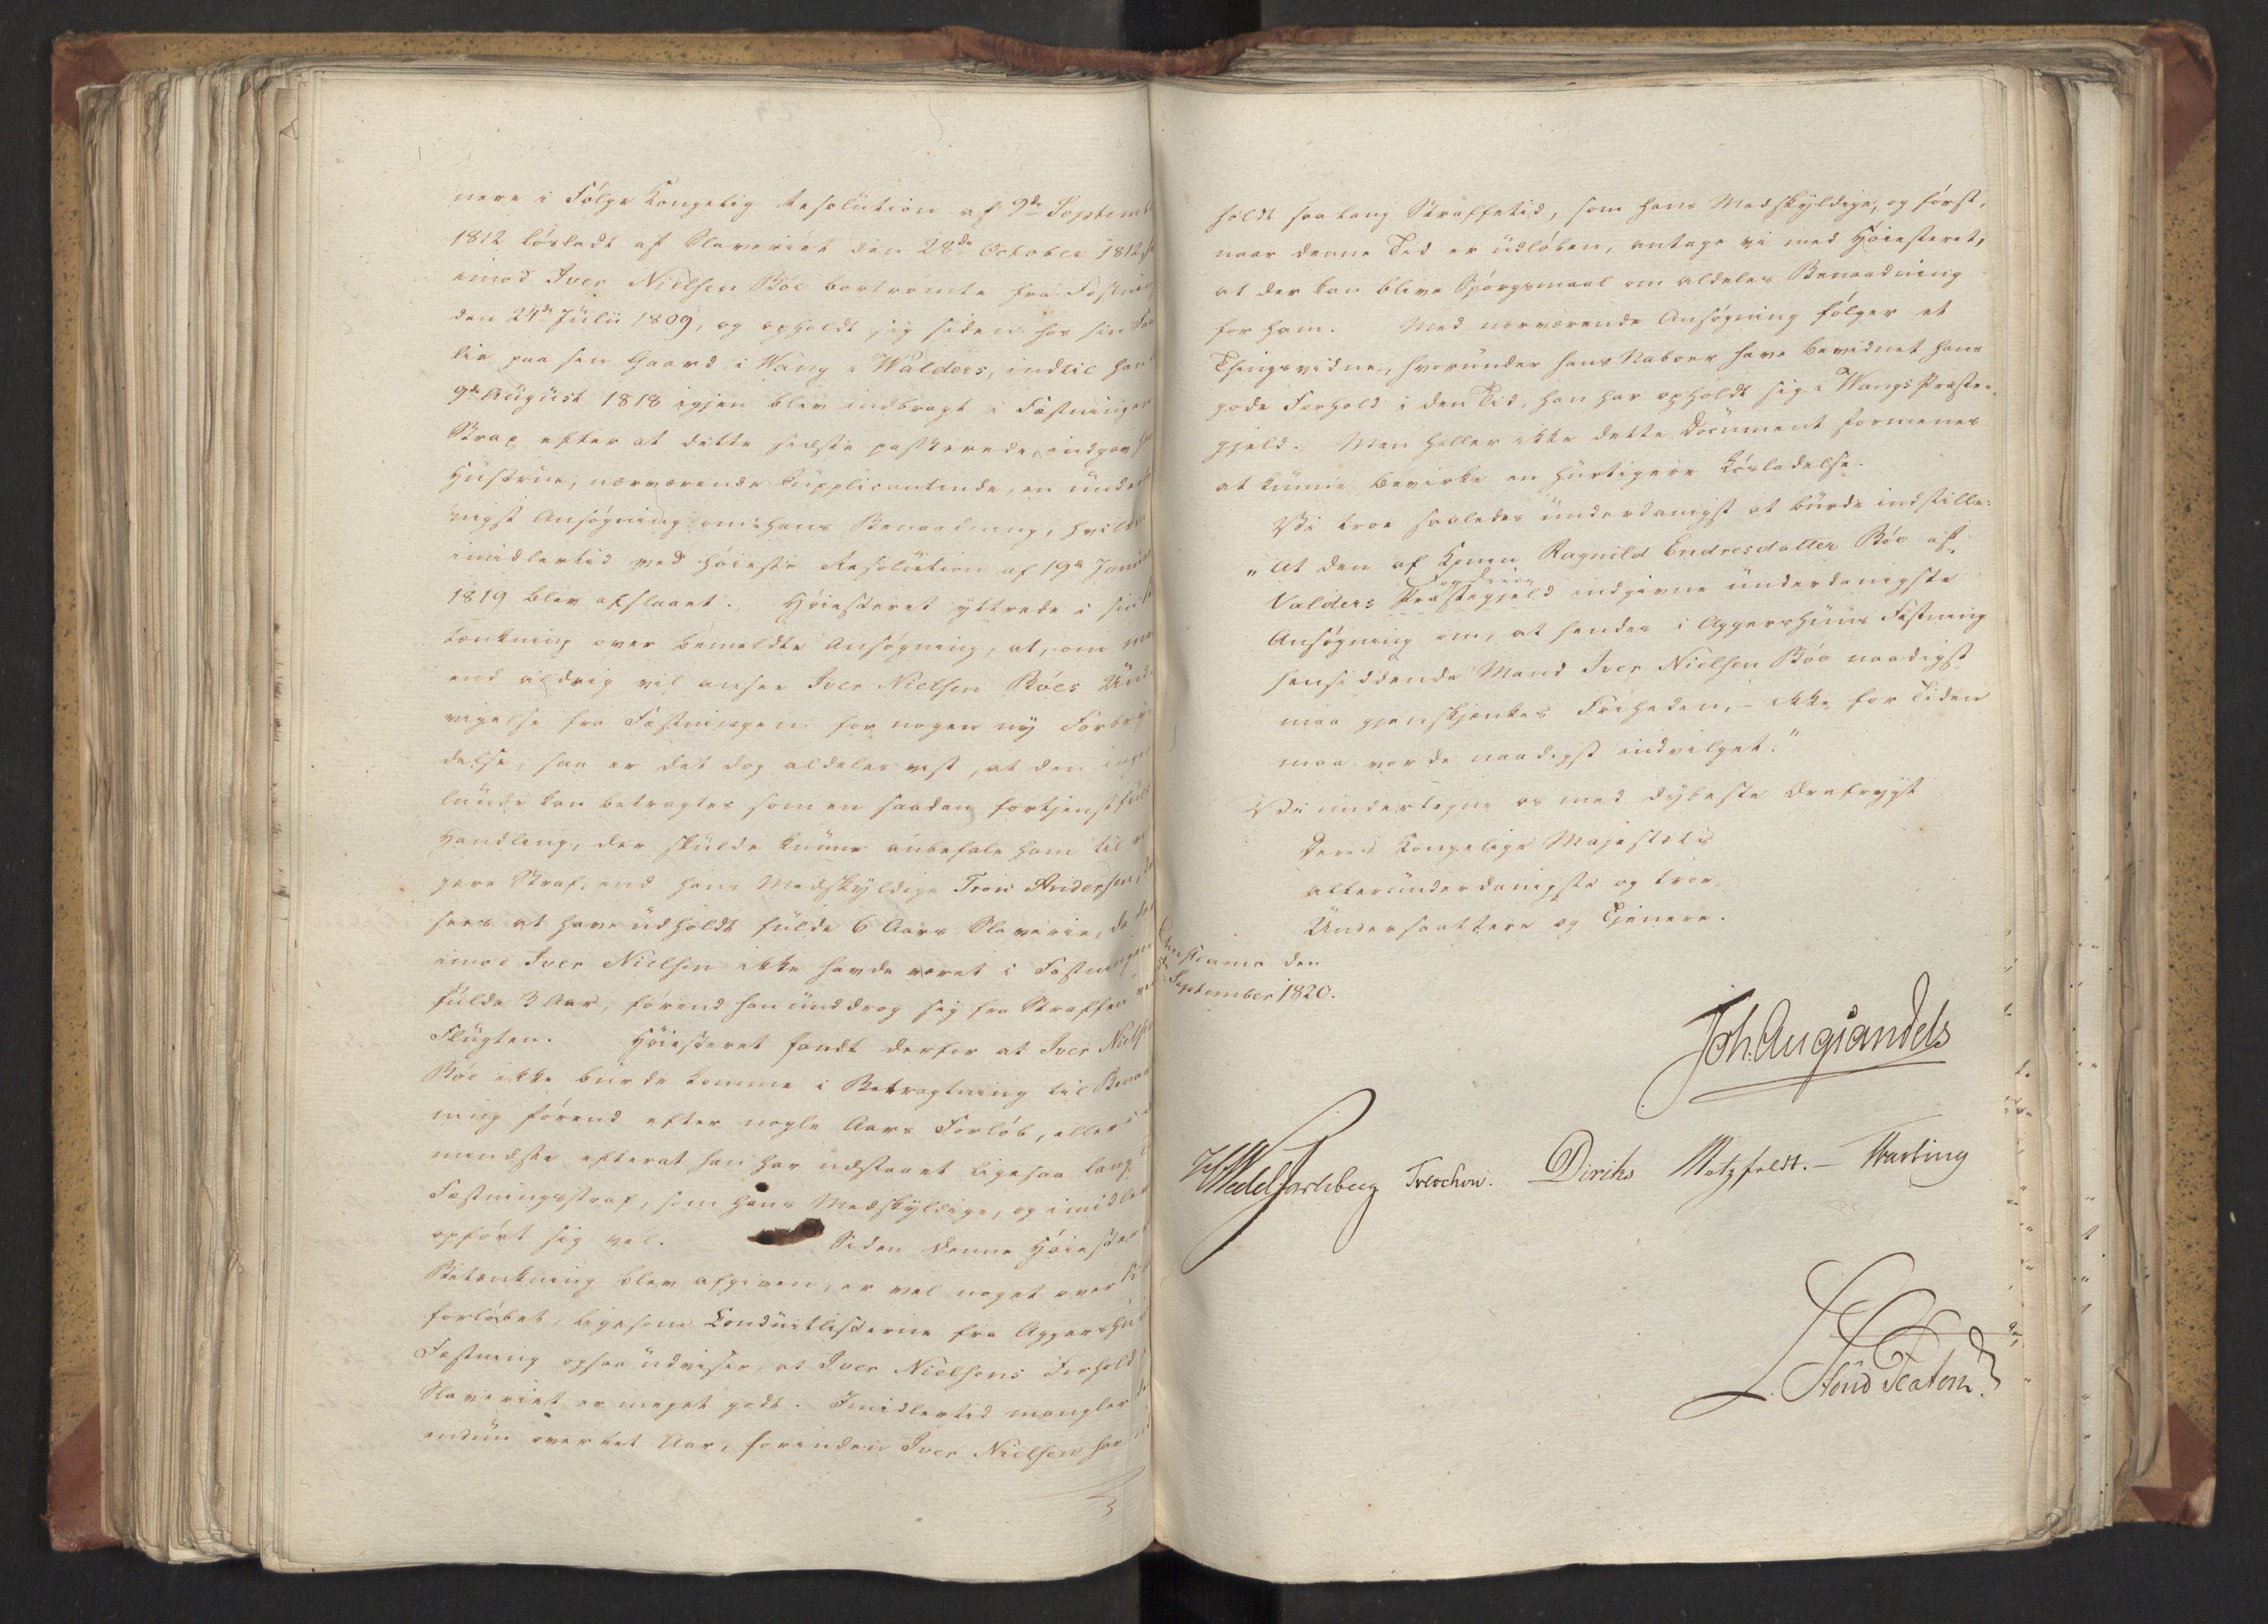 nere i Følge Kongelig Resolution af 9de Septemb
1812 løsladt af Slaveriet den 28de October 1812,
imod Iver Nielsen Bøe bortrømte fra Fæstning
den 24de Julii 1809, og opholdt sig siden hos sin Fam
lie paa sin Gaard i Wang i Walders, indtil han
9de August 1818 igjen blev indbragt i Fæstningen
Strax efter at dette sidste passerede, indgav
Hustrue, nærværende Supplicantinde, en under
nigst Ansøgning om hans Benaadning, hvilken
imidlertid ved høieste Resolution af 19de Janu
1819 blev afslaaet. Høiesteret yttrede i sin
tænkning over bemeldte Ansøgning, at, om man
end aldrig vil ansee Iver Nielsen Bøes Und
vigelse fra Fæstningen for nogen ny Forbry
delse, saa er det dog aldeles vist, at den ingen
lunde kan betragtes som en saadan fortjenstfuld
Handling, der skulde kunne anbefale ham til
gere Straf, end hans Medskyldige Tron Andersen,
sees at have udholdt fulde 6 Aars Slaverie, da der
imod Iver Nielsen ikke havde været i Fæstningen
fulde 3 Aar, førend han unddrog sig fra Straffen ved
Flugten. Høiesteret fandt derfor at Iver Niels
Bøe ikke burde komme i Betragtning til Benaad
ning førend efter nogle Aars Forløb, eller i
mindste efterat han har udstaaet ligesaa lang
Fæstningsstraf, som hans Medskyldige, og imidler
opført sig vel. Siden denne Høiester
Betænkning blev afgiven, er vel noget over
forløbet, ligesom Conduitlisterne fra Aggershu
Fæstning ogsaa udviser, at Iver Nielsens Forhold
Slaveriet er meget godt. Imidlertid mangler
endnu over eet Aar, forinden Iver Nielsen har
holdt saa lang Straffetid, som hans Medskyldige, og først,
naar denne Tid er udløben, antage vi med Høiesteret,
at der kan blive Spørgsmaal om aldeles Benaadning
for ham. Med nærværende Ansøgning følger et
Thingsvidne, hvorunder hans Naboer have bevidnet hans
gode Forhold i den Tid, han har opholdt sig i Wangs Præste-
gjeld. Men heller ikke dette Document formenes
at kunne bevirke en hurtigere Løsladelse.
Vi troe saaledes underdanigst at burde indstille:
"At den af Konen Ragnild Endresdatter Bøe af
Fogderie
Valders Præstegjeld indgivne underdanigste
Ansøgning om, at hendes i Aggershuus Fæstning
hensiddende Mand Iver Nielsen Bøe naadigst
maa gjenskjænkes Friheden, - ikke for Tiden
maa vorde naadigst indvilget."
Vi undertegne os med dybeste Ærefrygt
Deres Kongelige Majestæts
allerunderdanigste og troe
Undersaattere og Tjenere.
Christiania den
September 1820.
Joh. Aug Sandels
Wedel Jarlsberg Treschow. Diriks Motzfeldt. -